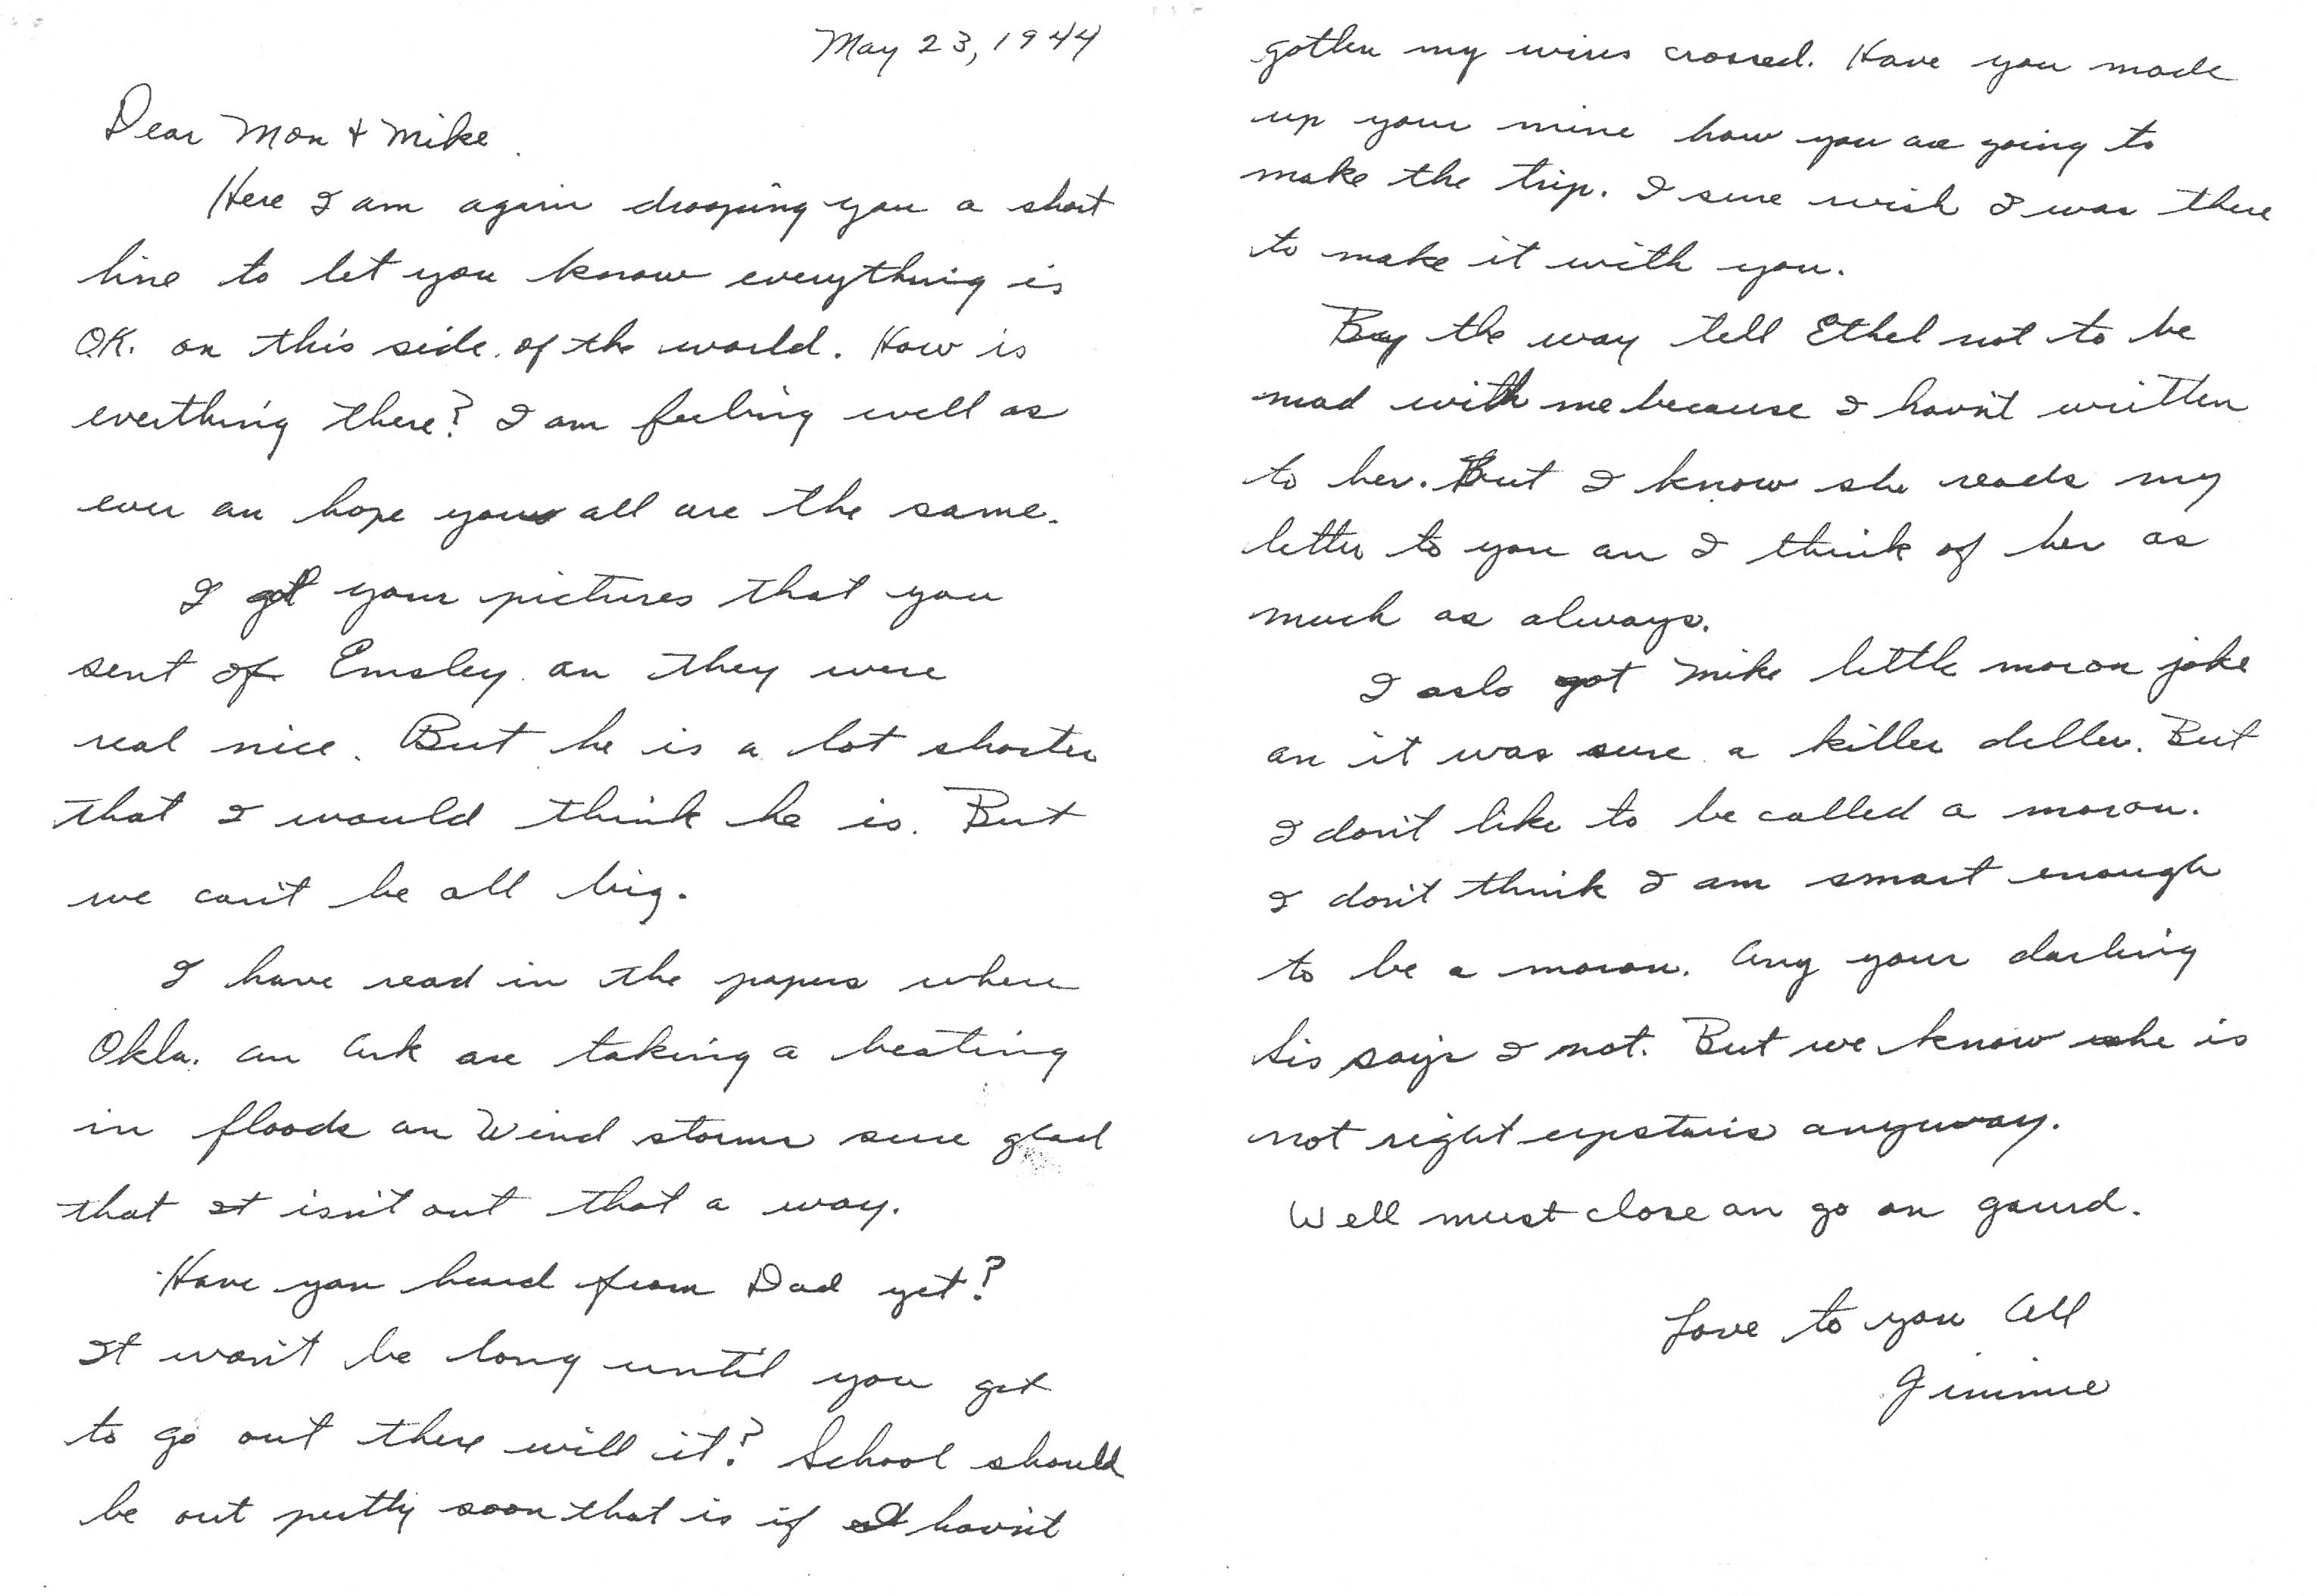 May 23, 1944
Dear Mom & Mike
Here I am again droping you a short
line to let you know everything is
O.K. on this side of the world. How is
everthing there? I am feeling well as
ever an hope you all are the same.
I got your pictures that you
sent of Emsley an they were
real nice. But he is a lot shorter
that I would think he is. But
we can't be all big.
I have read in the papers where
Okla. an Ark are taking a beating
in floods an Wind storms sure glad
that it isn't out that a way.
Have you heard from Dad yet?
It won't be long until you get
to go out there will it? School should
be out pretty soon that is if I havn't
gotten my wires crossed. Have you made
up your mine how you are going to
make the trip. I sure wish I was there
to make it with you.
By the way tell Ethel not to be
mad with me because I havn't written
to her. But I know she reads my
letter to you an I think of her as
much as always.
I aslo got Mike little moron joke
an it was sure a killer diller. But
I don't like to be called a moron.
I don't think I am smart enough
to be a moron. Any your darling
Sis says I not. But we know she is
not right upstairs anyway.
Well must close an go on gaurd.
Love to you All
Jimmie